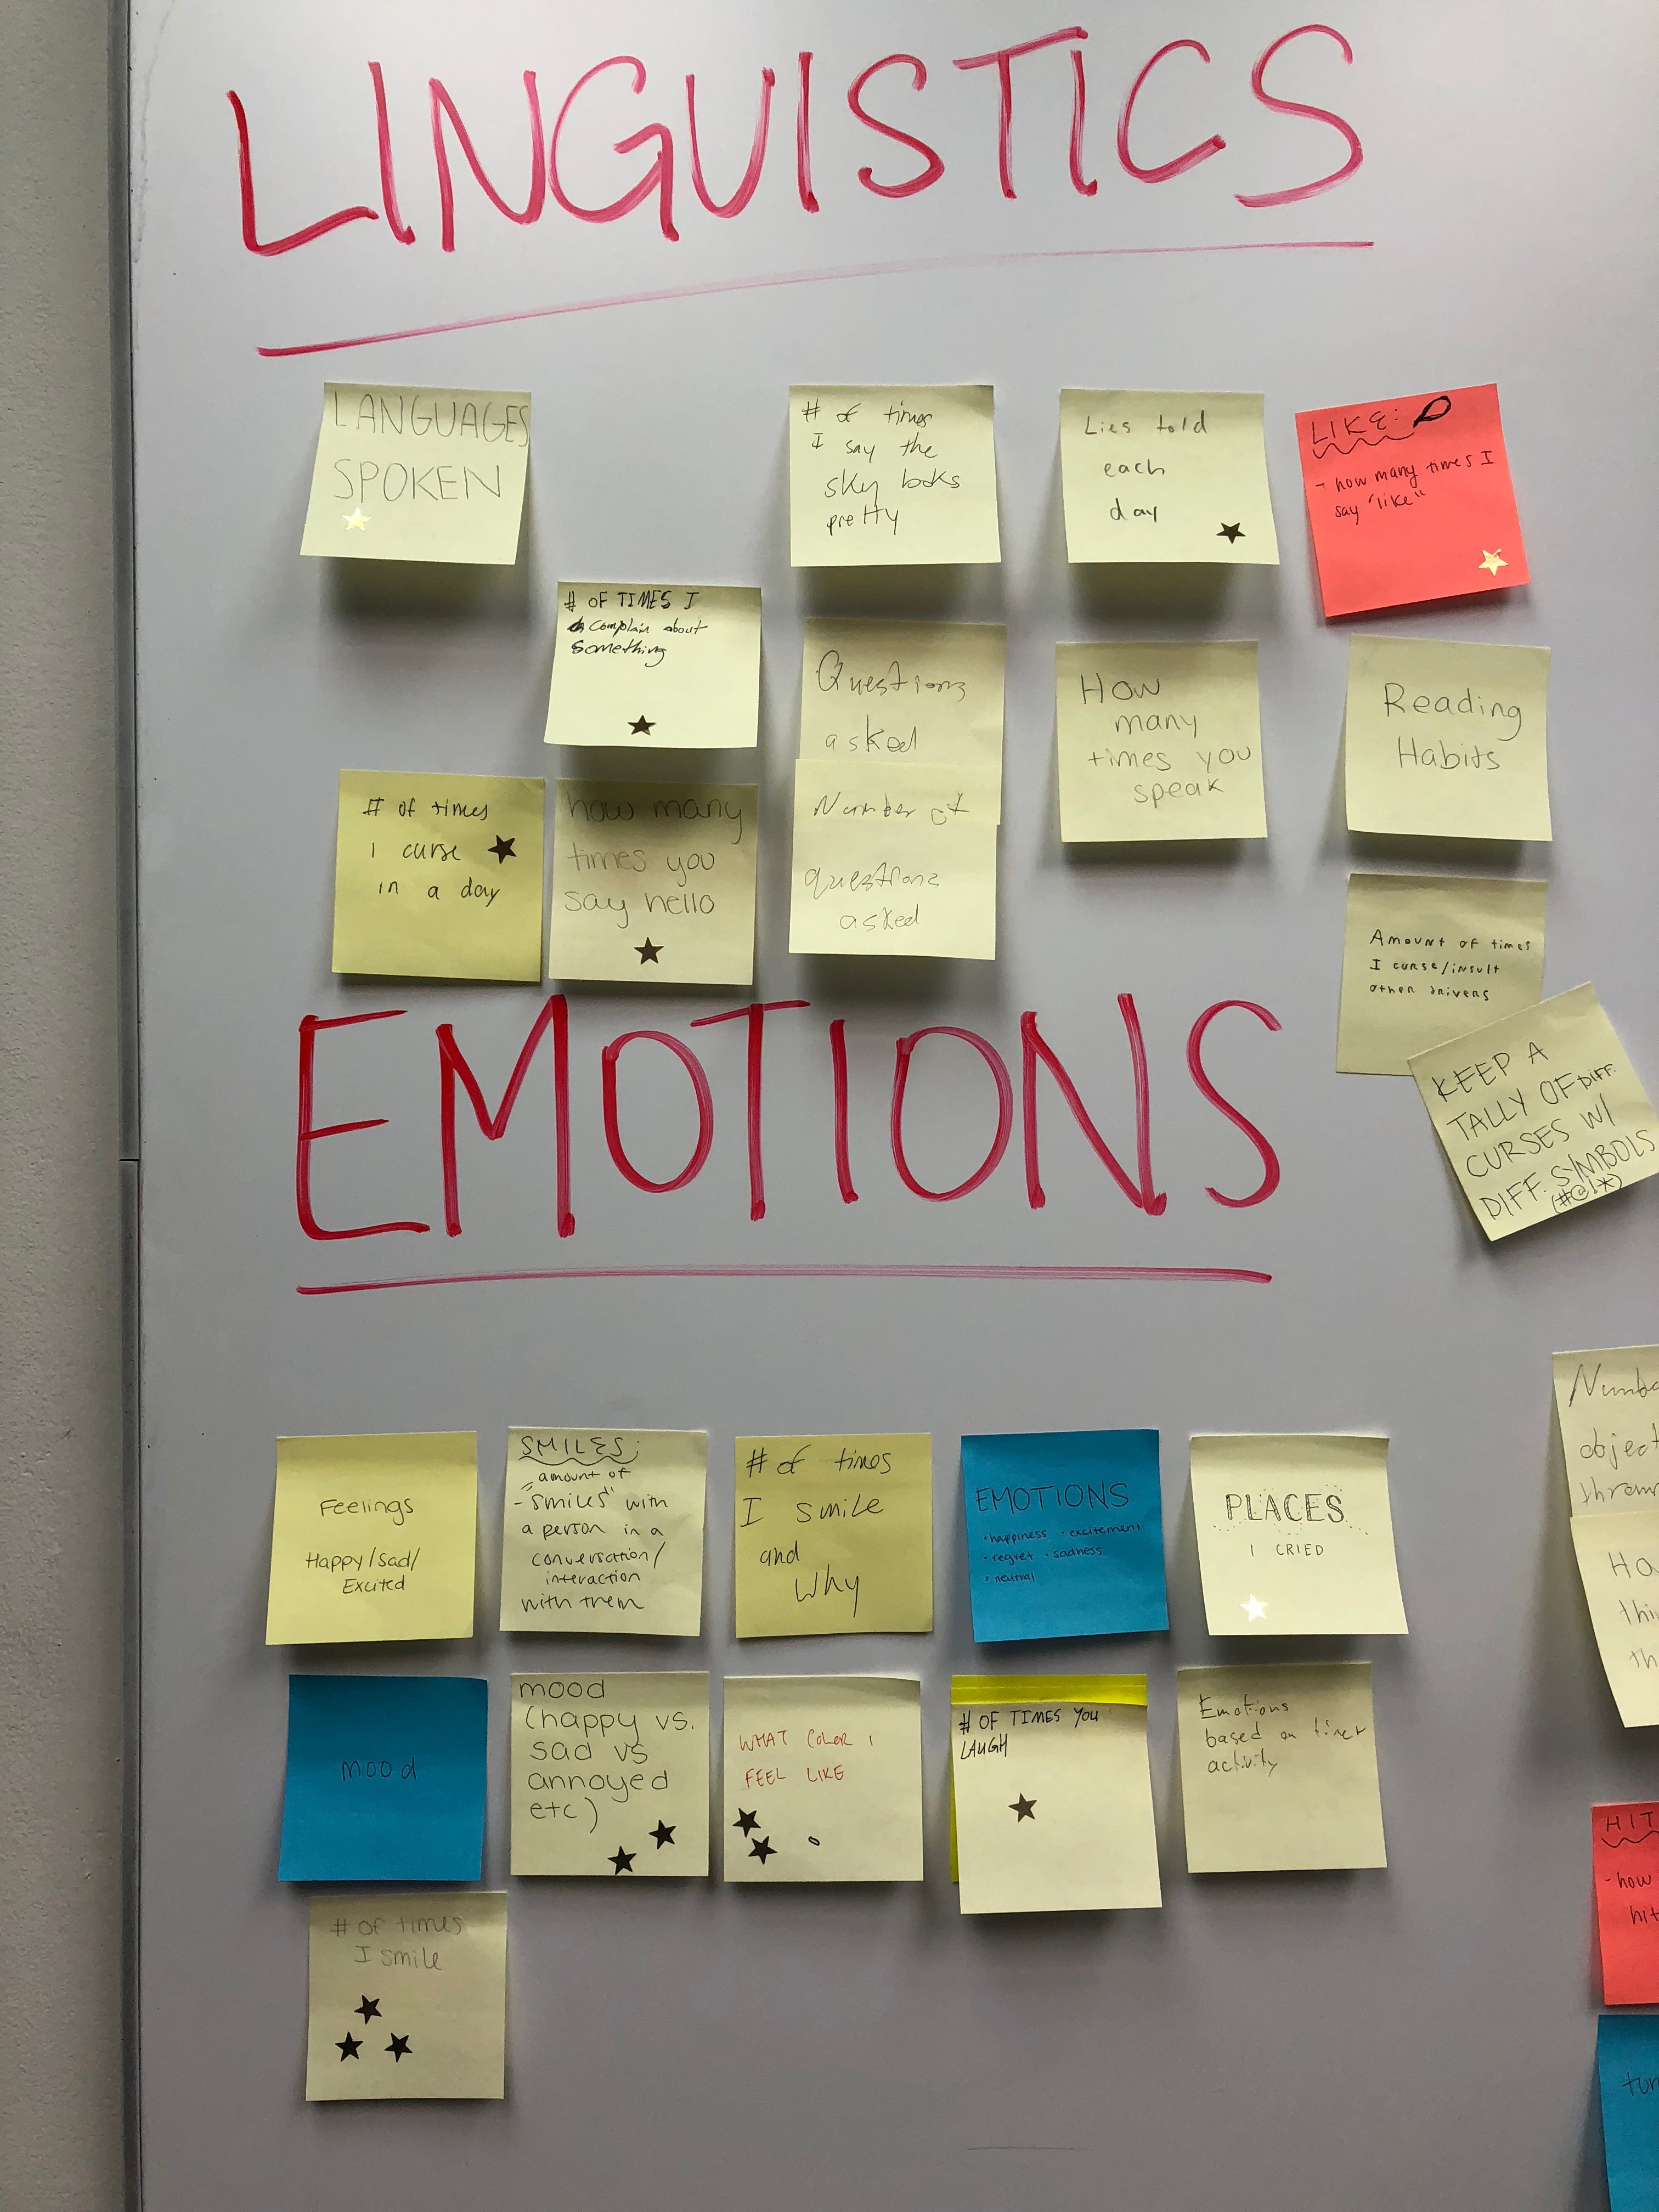 LINGUISTICS
LANGUAGES
SPOKEN
# of times
I say the
sky looks
pretty
Lies told
each
day
LIKE:
- how many times I
say "like"
# OF TIMES I
complain about
something
Questions
asked
HOW
many
times you
speak
Reading
Habits
# of times
I curse
in a day
how many
times you
say hello
Number of
questions
asked
Amount of times
I curse/insult
other drivers
KEEP A
TALLY OF DIFF.
CURSES W/
DIFF. SYMBOLS
(#@!*)
EMOTIONS
Feelings
Happy/Sad/
Excited
SMILES:
amount of
- "smiles" with
a person in a
conversation/
interaction
with them
# of times
I smile
and
why
EMOTIONS
• happiness • excitement
• regret • sadness
• neutral
PLACES
I CRIED
mood
mood
(happy vs.
sad vs
annoyed
etc)
WHAT COLOR I
FEEL LIKE
# OF TIMES YOU
LAUGH
Emotions
based on
activity
# of times
I smile
Numb
object
thrown
Ho
thi
th
HIT
- how
hit
tur